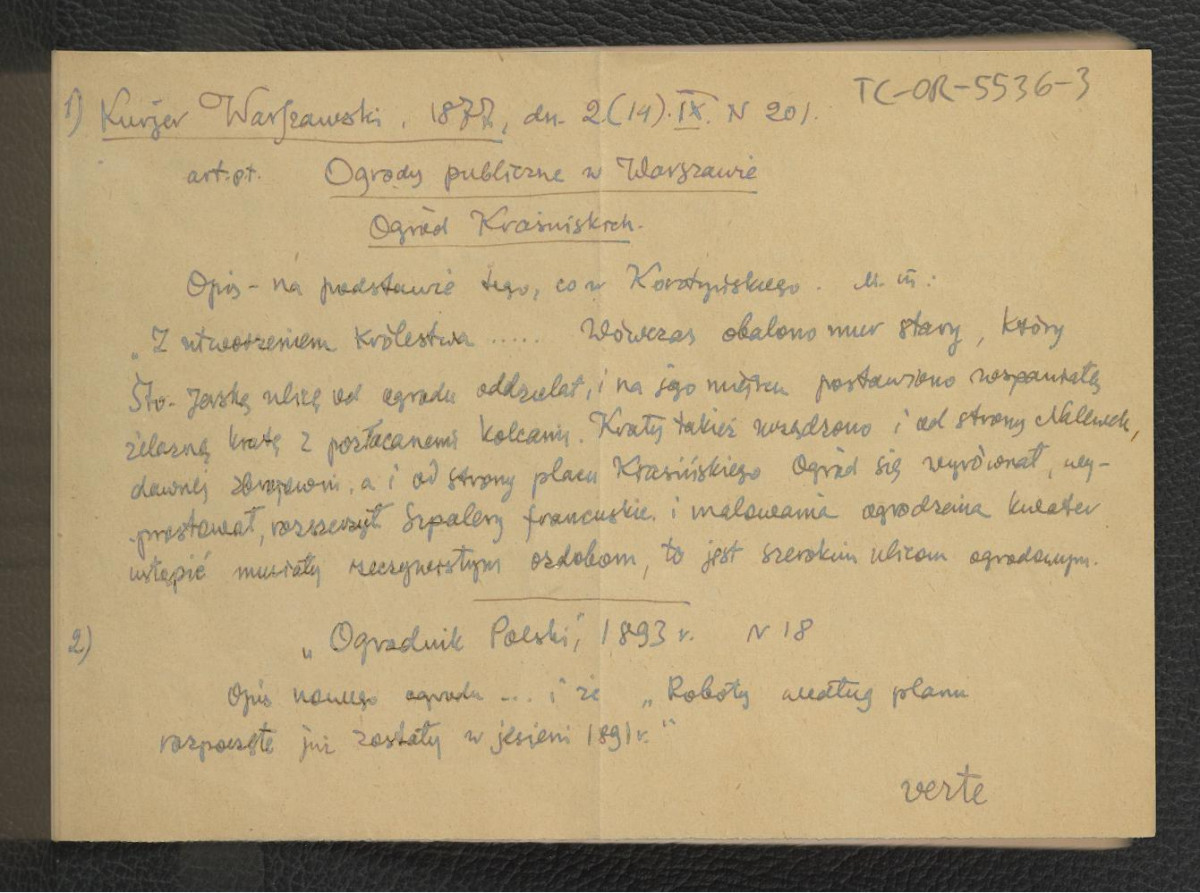 TC-OR-5536-3
1) Kurjer Warszawski. 1877, dn. 2(14).IX. N 201.
art. pt. Ogrody publiczne w Warszawie
Ogród Krasińskich.
Opis - na podstawie tego, co w Korotyńskiego. M. in:
„Z utworzeniem Królestwa ...... Wówczas obalono mur stary, który
Śto-Jerską ulicę od ogrodu oddzielał, i na jego miejscu postawiono wspaniałą
żelazną kratę z pozłacanemi kolcami. Kraty takież urządzono i od strony Nalewek,
dawnej zbrojowni, a i od strony placu Krasińskiego Ogród się wyrównał, wy-
prostował, rozszerzył Szpalery francuskie i malowania ogrodzenia kwater
ustąpić musiały rzeczywistym ozdobom, to jest szerokim ulicom ogrodowym.
2) „Ogrodnik Polski", 1893 r. N 18
Opis nowego ogrodu ... i że „Roboty według planu
rozpoczęte już zostały w jesieni 1891 r."
verte